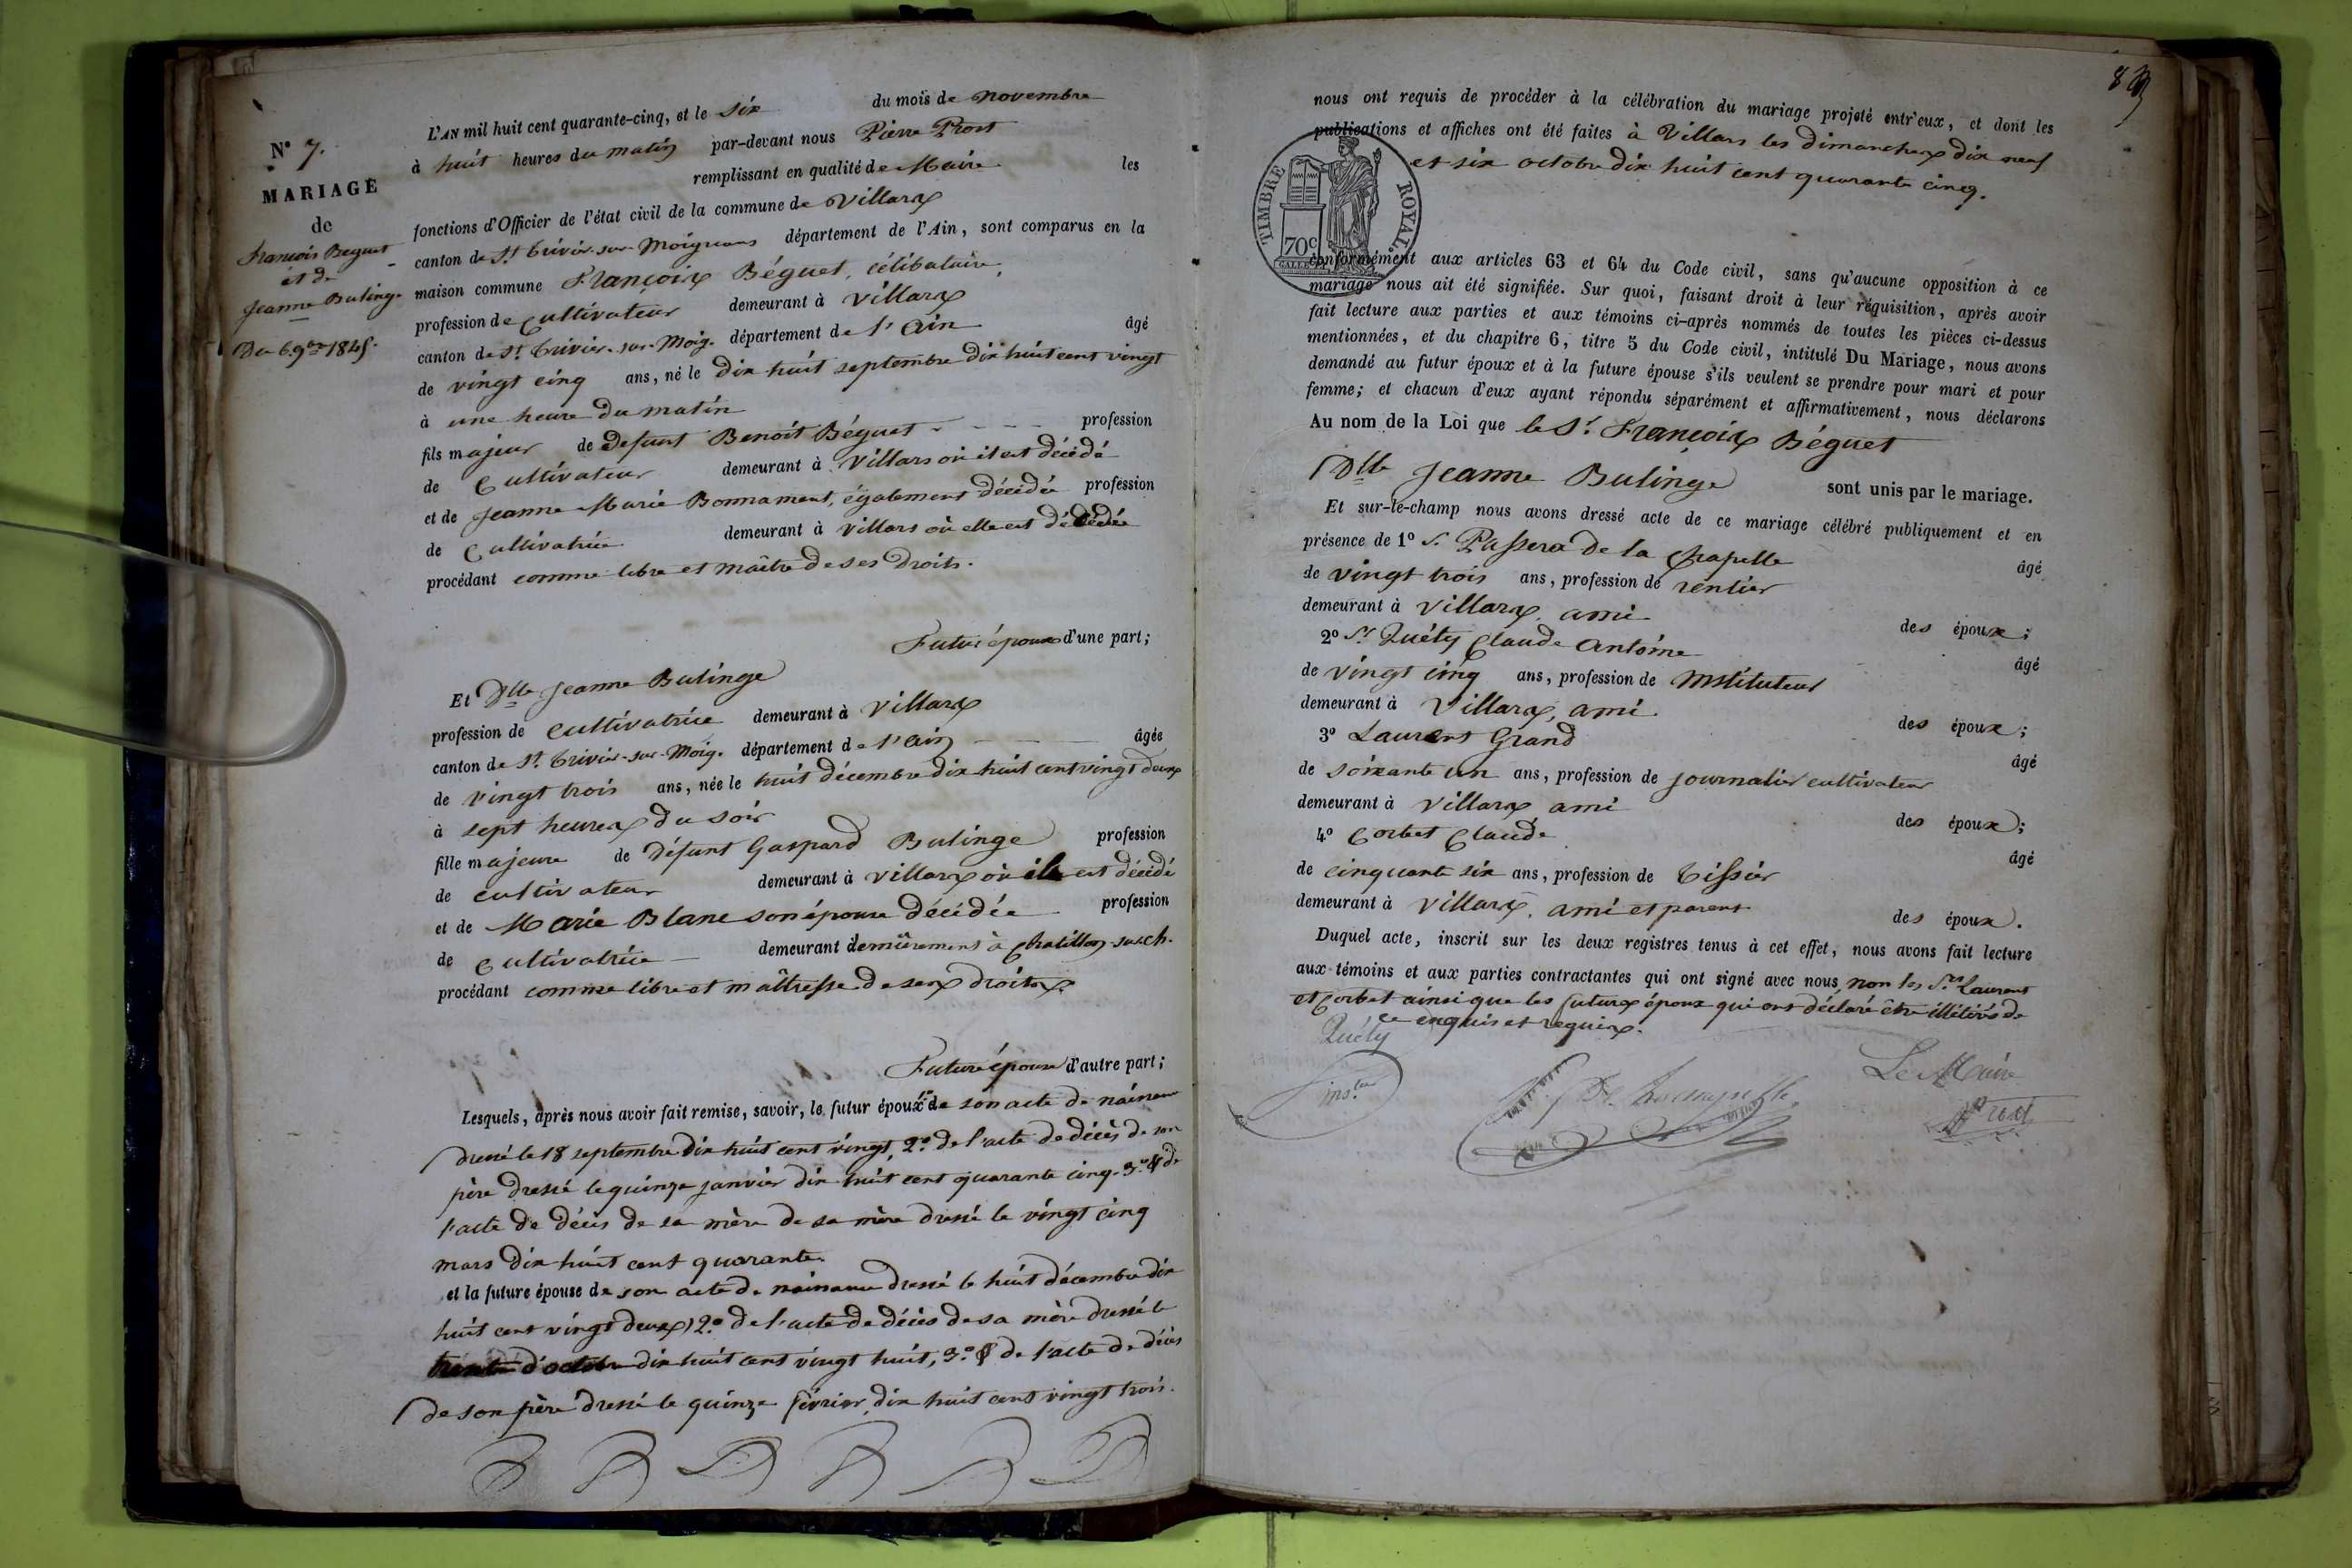 N° 7.
MARIAGE
de
François Beguet
et de
Jeanne Bulinge
Du 6 9bre 1845.
L'AN mil huit cent quarante-cinq, et le six du mois de novembre
à huit heures du matin par-devant nous Pierre Prost
remplissant en qualité de Maire les
fonctions d'Officier de l'état civil de la commune de Villars
canton de St. Trivier-sur-Moignans département de l'Ain, sont comparus en la
maison commune François Béguet, célibataire,
profession de Cultivateur demeurant à Villars
canton de St. Trivier-sur-Moig. département de l'Ain âgé
de vingt cinq ans, né le dix-huit septembre dix huit cent vingt
à une heure du matin
fils majeur de Defunt Benoit Béguet profession
de Cultivateur demeurant à Villars où il est décédé
et de Jeanne Marie Bonnament, également décédée profession
de Cultivatrice demeurant à Villars où elle est décédée
procédant comme libre et maître de ses droits.
Futur époux d'une part;
Et Dlle Jeanne Bulinge
profession de cultivatrice demeurant à Villars
canton de St. Trivier-sur-Moig. département de l'ain âgée
de vingt trois ans, née le huit décembre dix huit cent vingt deux
à sept heures du soir
fille majeure de Défunt Gaspard Bulinge profession
de cultivateur demeurant à Villars où il est décédé
et de Marie Blanc son épouse décédée profession
de Cultivatrice demeurant dernièrement à Chatillon-sur-Ch.
procédant comme libre et maîtresse de ses droits.
Future épouse d'autre part;
Lesquels, après nous avoir fait remise, savoir, le futur époux 1° de son acte de naissance
dressé le 18 septembre dix huit cent vingt, 2° de l'acte de décès de son
père dressé le quinze janvier dix huit cent quarante cinq. 3° & de
l'acte de décès de sa mère de sa mère dressé le vingt cinq
mars dix huit cent quarante.
et la future épouse de son acte de naissance dressé le huit décembre dix
huit cent vingt deux, 2° de l'acte de décès de sa mère dressé le
trente d'octobre dix huit cent vingt huit, 3° & de l'acte de décès
de son père dressé le quinze février dix huit cent vingt trois.
8
nous ont requis de procéder à la célébration du mariage projeté entr'eux, et dont les
publications et affiches ont été faites à Villars les dimanches dix neuf
et six octobre dix huit cent quarante cinq.
TIMBRE ROYAL
70c
conformément aux articles 63 et 64 du Code civil, sans qu'aucune opposition à ce
mariage nous ait été signifiée. Sur quoi, faisant droit à leur réquisition, après avoir
fait lecture aux parties et aux témoins ci-après nommés de toutes les pièces ci-dessus
mentionnées, et du chapitre 6, titre 5 du Code civil, intitulé Du Mariage, nous avons
demandé au futur époux et à la future épouse s'ils veulent se prendre pour mari et pour
femme; et chacun d'eux ayant répondu séparément et affirmativement, nous déclarons
Au nom de la Loi que le Sr. François Béguet
Dlle Jeanne Bulinge sont unis par le mariage.
Et sur-le-champ nous avons dressé acte de ce mariage célébré publiquement et en
présence de 1° S. Passera de la Chapelle âgé
de vingt trois ans, profession de rentier
demeurant à Villars, ami des époux;
2° Sr Quéty Claude Antoine âgé
de vingt cinq ans, profession de Instituteur
demeurant à Villars, ami des époux;
3° Laurent Grand âgé
de soixante un ans, profession de journalier cultivateur
demeurant à Villars ami des époux;
4° Corbet Claude âgé
de cinquante six ans, profession de Tissier
demeurant à Villars, ami et parent des époux.
Duquel acte, inscrit sur les deux registres tenus à cet effet, nous avons fait lecture
aux témoins et aux parties contractantes qui ont signé avec nous, non les Srs Laurent
et Corbet ainsi que les futurs époux qui ont déclaré être illitérés de
ce enquis et requis.
Quéty
inst.
Le Maire
Prost